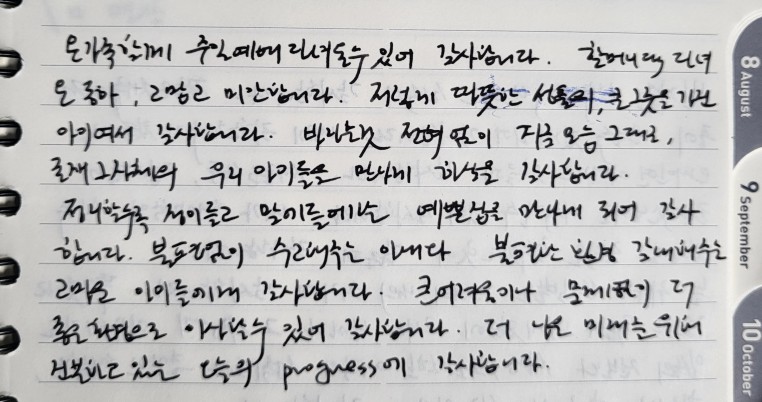 온가족 함께 주일예배 다녀올수 있어 감사합니다. 할머니댁 다녀
온 종아, 고맙고 미안합니다. 저렇게 따뜻한 큰 그릇을 가진
아이여서 감사합니다. 바라는것 전혀 없이 지금 모습 그대로,
존재 그자체의 우리 아이들을 만나게 하심을 감사합니다.
지나할수록 정이들고 말이들어가는 예쁜 집을 만나게 되어 감사
합니다. 불평없이 수고해주는 아내와 불편한 환경 감내해주는
고마운 아이들에게 감사합니다. 큰어려움이나 문제없이 더
좋은환경으로 이사할수 있어 감사합니다. 더 나은 미래를 위해
전보하고 있는 오늘의 progress에 감사합니다.
8 August
9 September
10 October